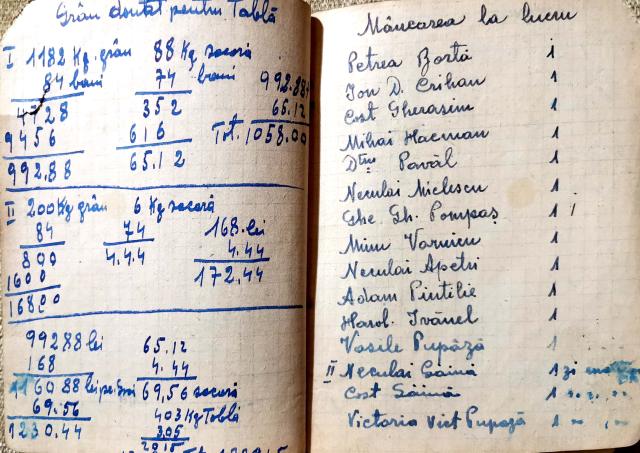 Grân donat pentru Tablă
I 1182 Kg. grân 88 Kg secară 992.88
84 bani 74 bani 65.12
4728 352 Tot. 1058.00
9456 616
992.88 65.12
II 200 Kg grân 6 Kg secară 168. lei
84 74 4.44
800 4.44 172.44
1600
168.00
992.88 lei 65.12
168 4.44
1160.88 lei 69,56 secară
69.56 403 Kg Tablă
1230.44 305
2015
Mâncarea la lucru
Petrea Bortă 1
Ion D. Crihan 1
Cost Gherasim 1
Mihai Hacman 1
Dtru Pavăl 1
Neculai Niclescu 1
Ghe. Gh. Pompaș 1 /
Mim Varnicu 1
Neculai Apetri 1
Adam Pintilie 1
Haral. Ivănel 1
Vasile Pupăză 1
II Neculai Săină 1 zi
Cost Săină 1
Victoria Vict Pupăză 1